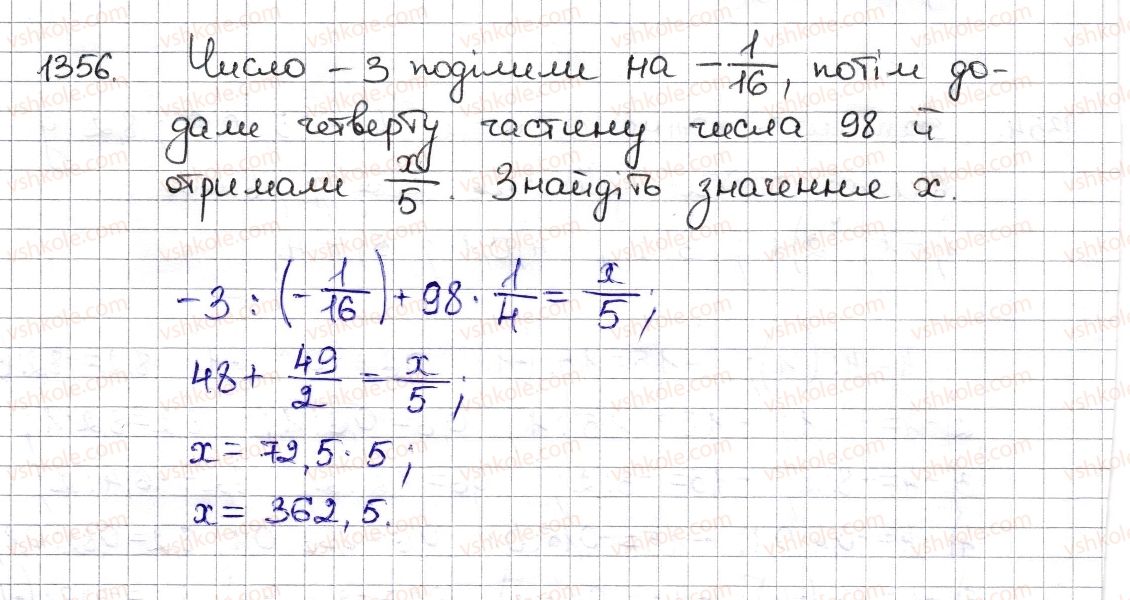 1356. Число -3 поділили на -1/16, потім до-
дали четверту частину числа 98 й
отримали x/5. Знайдіть значення x.
-3 : (-1/16) + 98 · 1/4 = x/5;
48 + 49/2 = x/5;
x = 72,5 · 5;
x = 362,5.